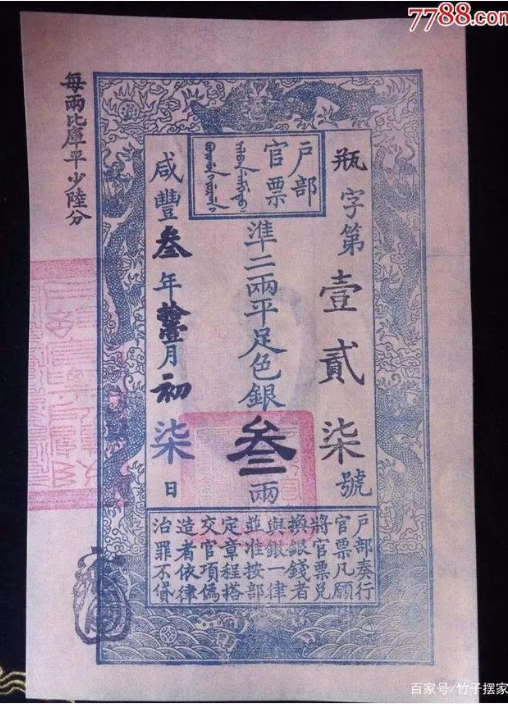 7788.com
瓶字第壹貳柒號
戶部
官票
準二兩平足色銀叁兩
咸豐叁年拾壹月初柒日
每兩比庫平少陸分
戶部奏行
官票凡願
將官票兌
換銀錢者
與銀一律
並准按部
定章程搭
交官項偽
造者依律
治罪不貸
百家号/竹子摆家